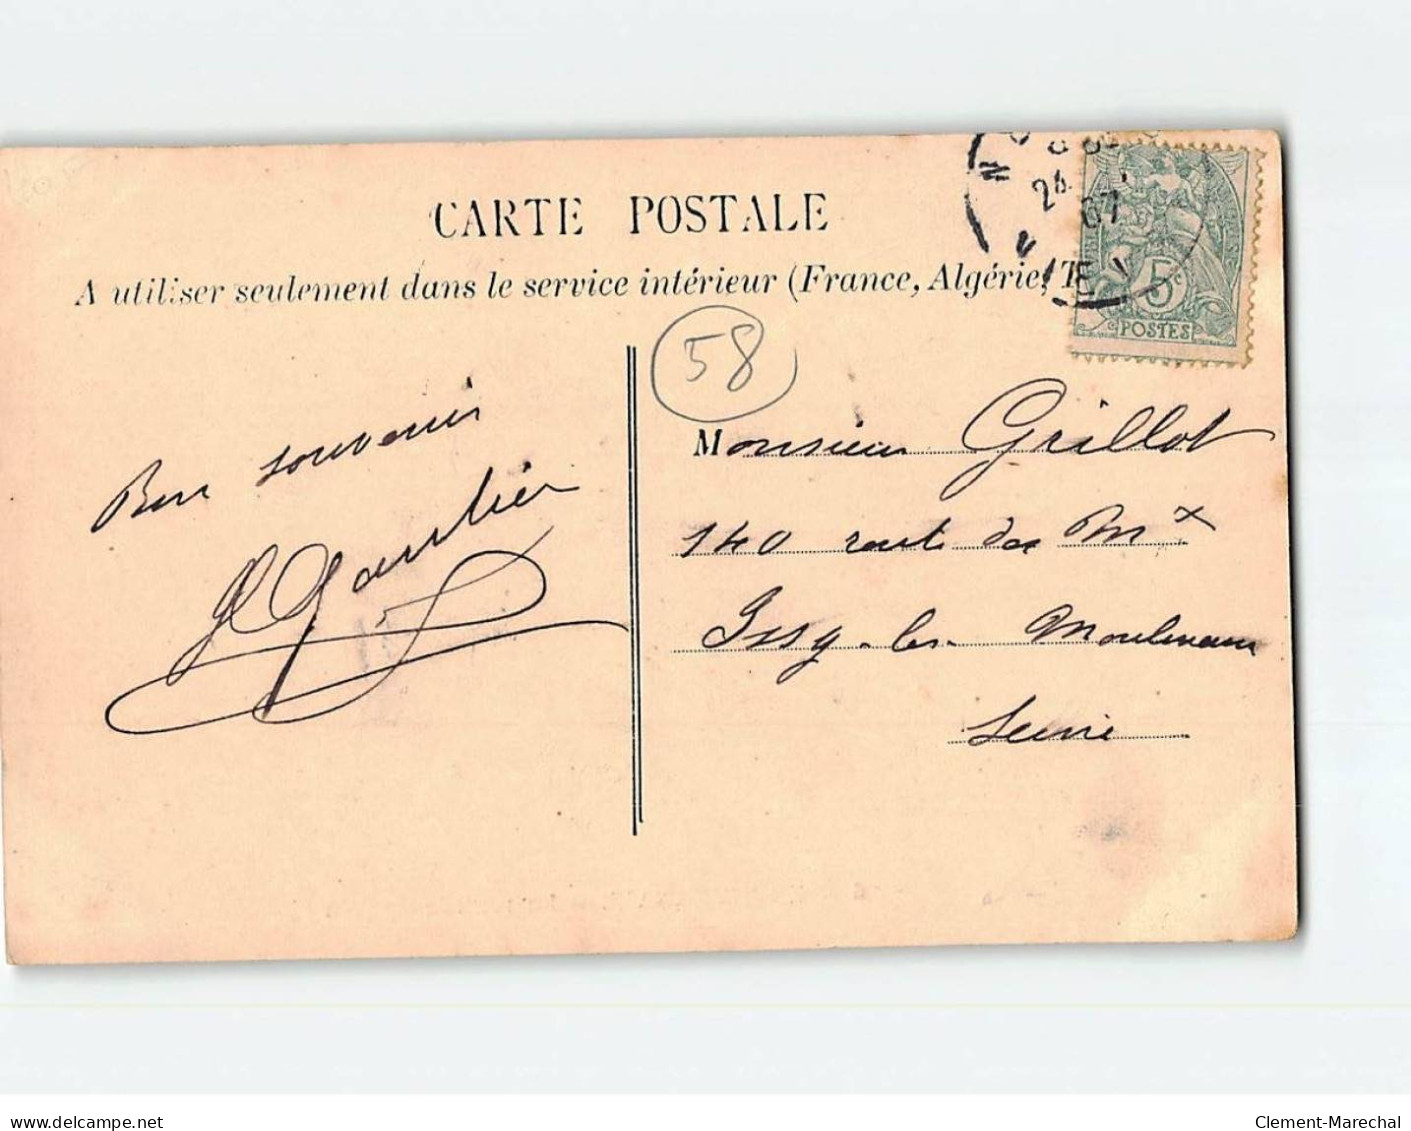 CARTE POSTALE
A utiliser seulement dans le service intérieur (France, Algérie, T
24
07
5c
POSTES
58
Bon souvenir
Gautier
Monsieur Grillot
140 route des Mx
Issy-les-Moulineaux
Seine
delcampe.net
Clement-Marechal